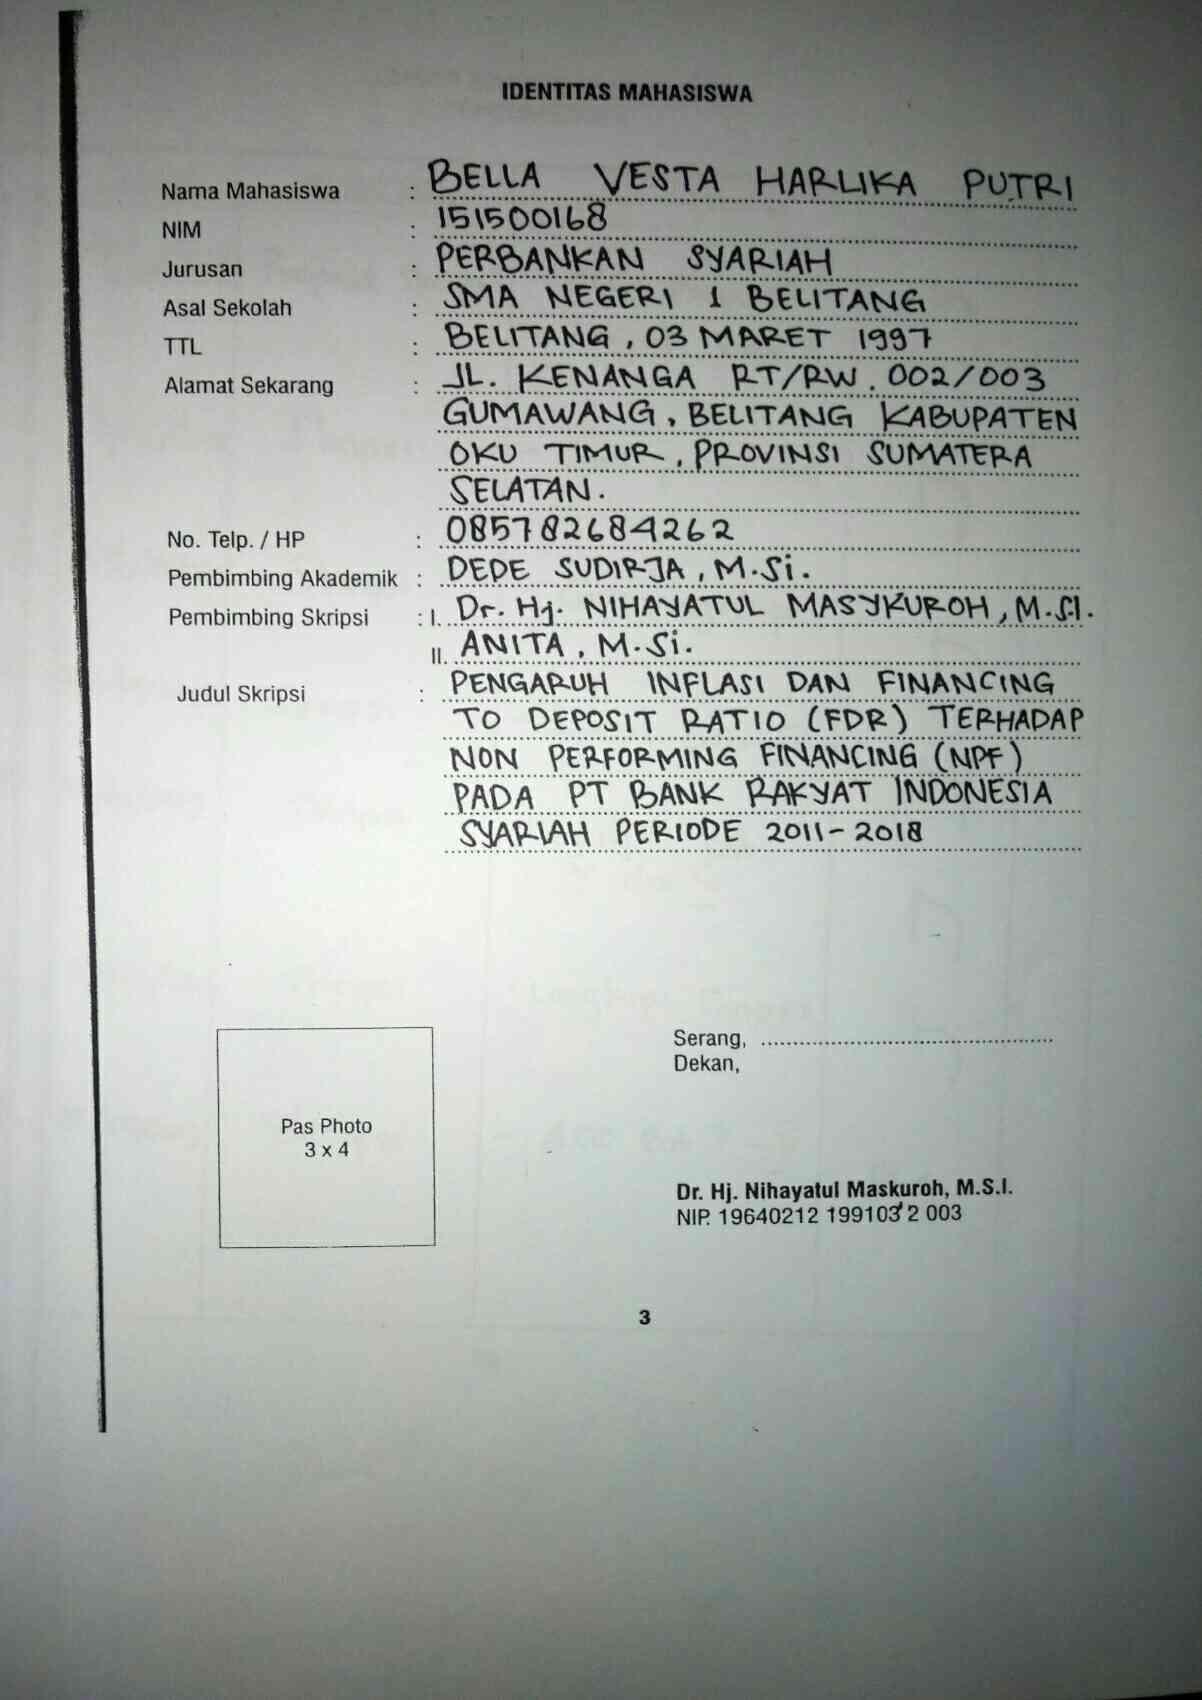 IDENTITAS MAHASISWA
Nama Mahasiswa : BELLA VESTA HARLIKA PUTRI
NIM : 151500168
Jurusan : PERBANKAN SYARIAH
Asal Sekolah : SMA NEGERI 1 BELITANG
TTL : BELITANG, 03 MARET 1997
Alamat Sekarang : JL. KENANGA RT/RW. 002/003
GUMAWANG, BELITANG KABUPATEN
OKU TIMUR, PROVINSI SUMATERA
SELATAN.
No. Telp. / HP : 085782684262
Pembimbing Akademik : DEDE SUDIRJA, M.Si.
Pembimbing Skripsi : I. Dr. Hj. NIHAYATUL MASYKUROH, M.S.I.
II. ANITA, M.Si.
Judul Skripsi : PENGARUH INFLASI DAN FINANCING
TO DEPOSIT RATIO (FDR) TERHADAP
NON PERFORMING FINANCING (NPF)
PADA PT BANK RAKYAT INDONESIA
SYARIAH PERIODE 2011-2018
Serang, ..................................................
Dekan,
Pas Photo
3 x 4
Dr. Hj. Nihayatul Maskuroh, M.S.I.
NIP. 19640212 199103 2 003
3